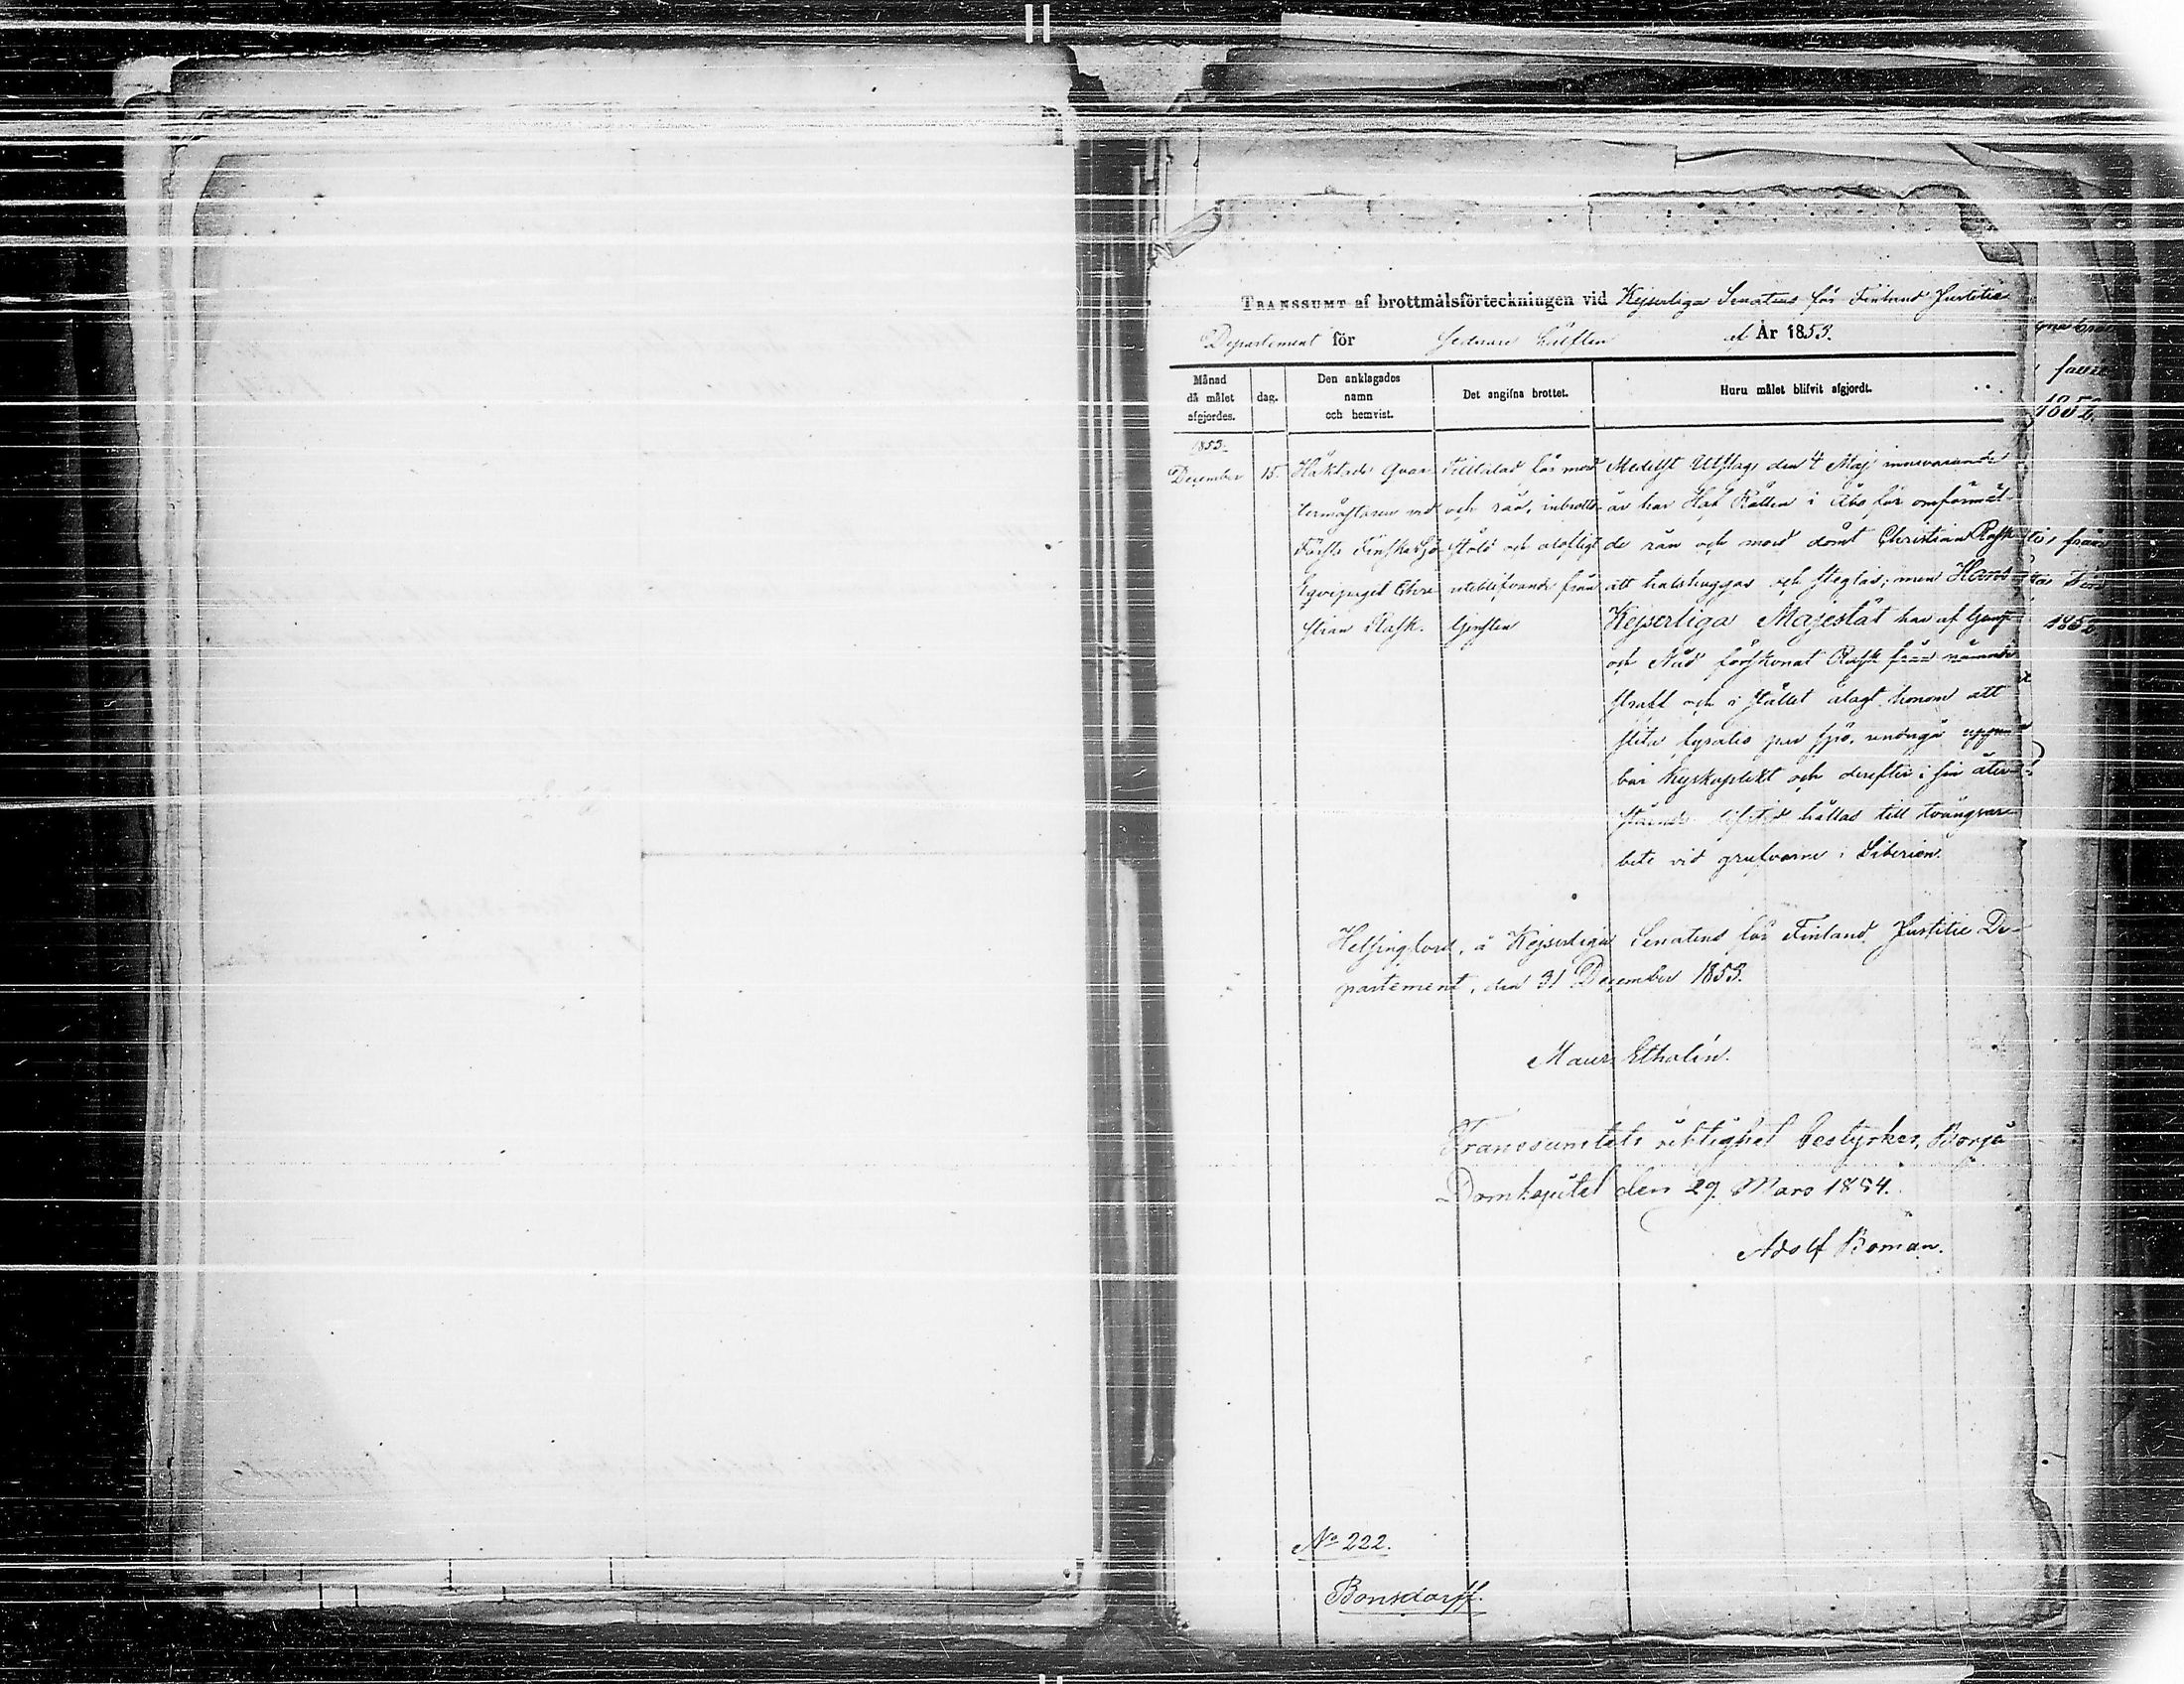 TRANSSUMT af brottmålsförteckningen vid Kejserliga Senatens för Finland Justitie
Departement för sednare hälften af År 1853.
Månad då målet afgjordes.
dag.
Den anklagades namn och hemvist.
Det angifna brottet.
Huru målet blifvit afgjordt.
1853.
December
15.
Häktade Qvar-
termästaren vid
Första Finska Sjö
Eqvipaget Chri-
stian Rask.
Tilltalad för mord
och rån, inbrotts-
stöld och olofligt
uteblifvande från
tjensten
Medelst Utslag den 4 Maj innevarande
år har Hof Rätten i Åbo för omförmäl-
de rån och mord dömt Christian Rask
att halshuggas och steglas; men Hans
Kejserliga Majestät har af Gunst
och Nåd förskonat Rask från nämnde
straff och i stället ålagt honom att
slita fyratio par spö, undergå uppen-
bar kyrkoplikt och derefter i sin åter-
stående lifstid hållas till tvångsar-
bete vid grufvorne i Siberien.
Helsingfors, å Kejserliga Senatens för Finland Justitie De-
partement, den 31 December 1853.
Maur: Etholén.
Transsumtets riktighet bestyrker, Borgå
Domkapitel den 29. Mars 1854.
Adolf Boman.
No 222.
Bonsdorff.
från
1852